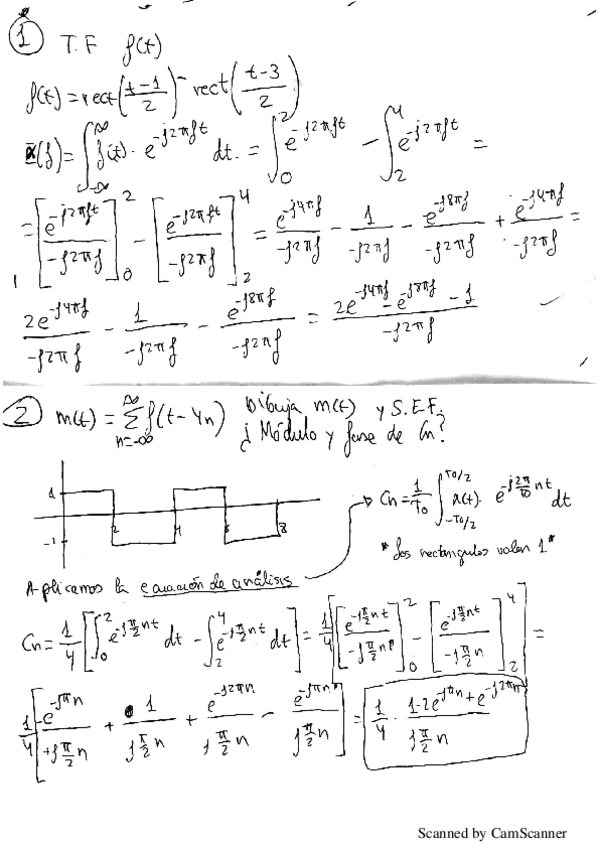 1 T.F f(t)
f(t) = rect((t-1)/2) - rect((t-3)/2)
X(f) = ∫_{-∞}^{∞} f(t) · e^{-j2πft} dt. = ∫_0^2 e^{-j2πft} - ∫_2^4 e^{-j2πft} =
= [e^{-j2πft}/(-j2πf)]_0^2 - [e^{-j2πft}/(-j2πf)]_2^4 = e^{-j4πf}/(-j2πf) - 1/(-j2πf) - e^{-j8πf}/(-j2πf) + e^{-j4πf}/(-j2πf) =
2e^{-j4πf}/(-j2πf) - 1/(-j2πf) - e^{-j8πf}/(-j2πf) = (2e^{-j4πf} - e^{-j8πf} - 1)/(-j2πf)
2 m(t) = ∑_{n=-∞}^{∞} f(t-4n) Dibuja m(t) y S.E.F.
¿Módulo y fase de Cn?
1
-1
2 4 6 8
Cn = 1/T0 ∫_{-T0/2}^{T0/2} x(t) · e^{-j(2π/T0)nt} dt
*Los rectangulos valen 1*
Aplicamos la ecuación de análisis
Cn = 1/4 [∫_0^2 e^{-j(π/2)nt} dt - ∫_2^4 e^{-j(π/2)nt} dt] = 1/4 [[e^{-j(π/2)nt}/(-j(π/2)n)]_0^2 - [e^{-j(π/2)nt}/(-j(π/2)n)]_2^4] =
1/4 [-e^{-jπn}/(+j(π/2)n) + 1/(j(π/2)n) + e^{-j2πn}/(j(π/2)n) - e^{-jπn}/(j(π/2)n)] = 1/4 · (1-2e^{-jπn}+e^{-j2πn})/(j(π/2)n)
Scanned by CamScanner